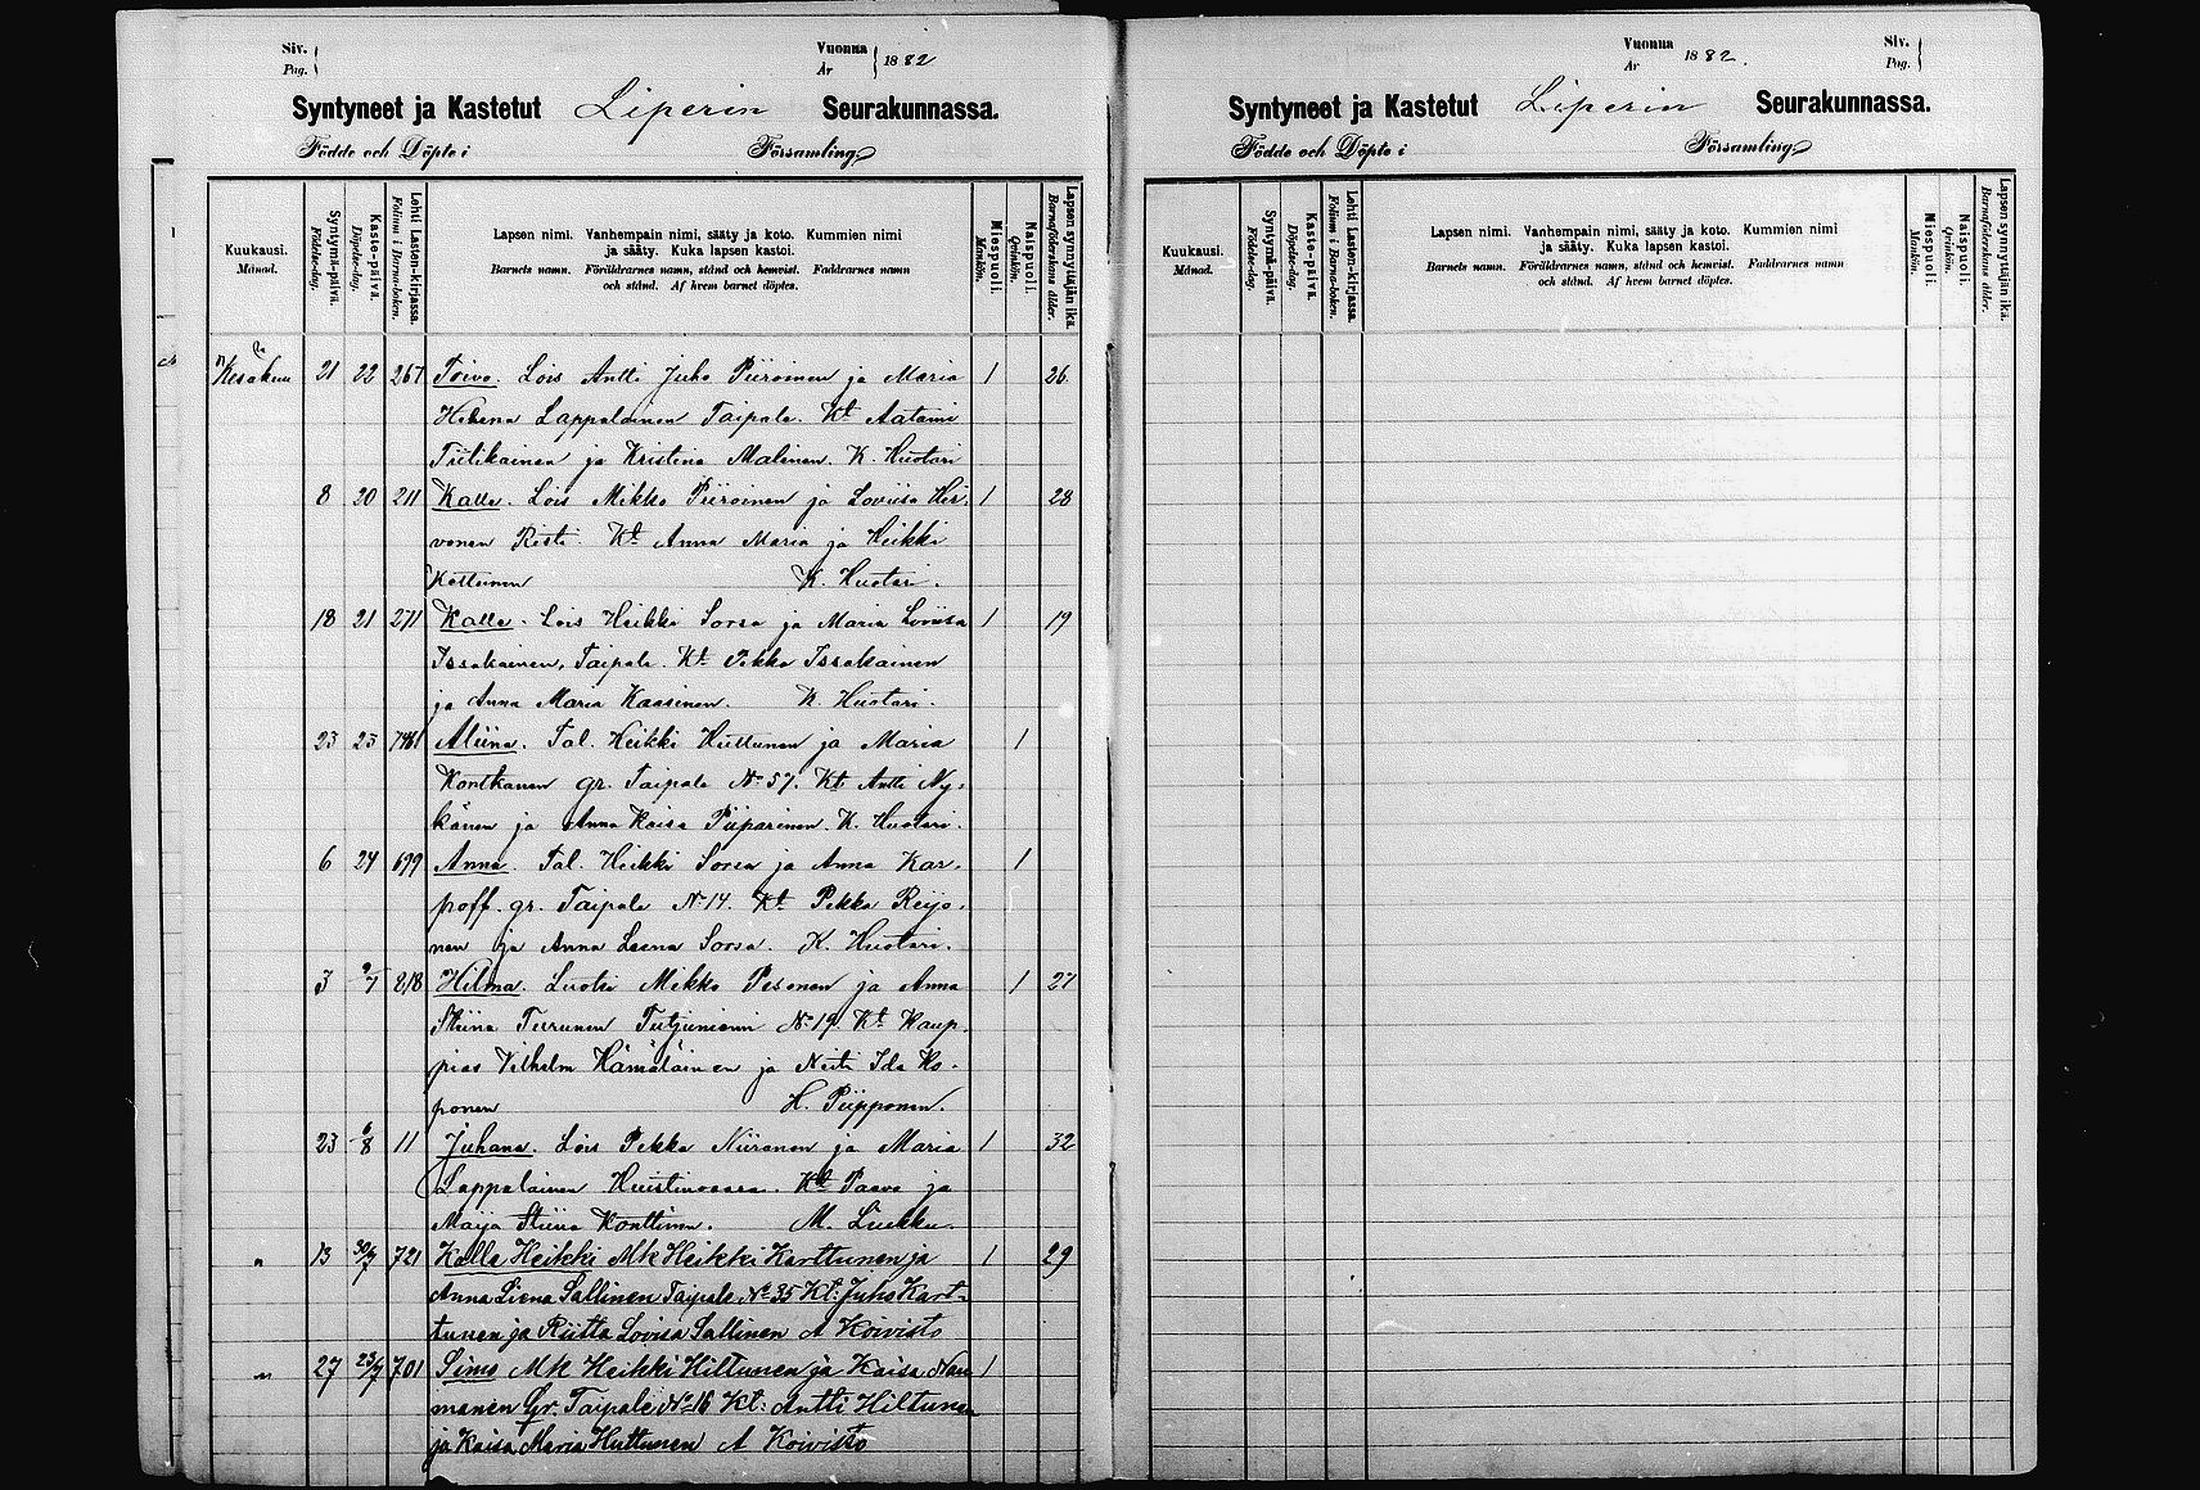 Siv.
Pag.
Vuonna
År
1882
Syntyneet ja Kastetut Liperin Seurakunnassa.
Födde och Döpte i Församling
Kuukausi.
Månad.
Syntymä-päivä.
Födelse-dag.
Kaste-päivä.
Döpelse-dag.
Lehti Lasten-kirjassa.
Folium i Barna-boken.
Lapsen nimi. Vanhempain nimi, sääty ja koto. Kummien nimi
ja sääty. Kuka lapsen kastoi.
Barnets namn. Föräldrarnes namn, stånd och hemvist. Faddrarnes namn
och stånd. Af hvem barnet döptes.
Miespuoli.
Mankön.
Naispuoli.
Qvinkön.
Lapsen synnyttäjän ikä.
Barnaföderskans ålder.
Kesäkuu 21 22 267 Toivo. Lois Antti Juho Piiroinen ja Maria 1 26
Helena Lappalainen Taipale. Kt Aatami
Tiilikainen ja Kristina Malinen. K. Huotari
8 20 211 Kalle. Lois Mikko Piiroinen ja Loviisa Hir- 1 28
vonen Risti. Kt Anna Maria ja Heikki
Kottunen K. Huotari.
18 21 271 Kalle. Lois Heikki Sorsa ja Maria Loviisa 1 19
Issakainen, Taipale. Kt Pekka Issakainen
ja Anna Maria Kaasinen. K. Huotari.
23 23 Aliina. Tal. Heikki Huttunen ja Maria 1
Kontkanen gr. Taipale No 57. Kt Antti Ny-
känen ja Anna Kaisa Piiparinen. K. Huotari.
6 24 699 Anna. Tal. Heikki Sorsa ja Anna Kar- 1
poff. gr. Taipale No 14. Kt Pekka Reijo-
nen ja Anna Leena Sorsa. K. Huotari.
3 9/7 818 Hilma. Luotsi Mikko Pesonen ja Anna 1 27
Stiina Turunen Tutjuniemi No 19. Kt Kaup-
pias Vilhelm Hämäläinen ja Neiti Ida Ko-
ponen H. Piipponen.
23 6/8 11 Juhana. Lois Pekka Niiranen ja Maria 1 32
Lappalainen Huistinvaara. Kt Paavo ja
Maija Stiina Konttinen. M. Liukku.
" 13 30/7 721 Kalle Heikki Mk Heikki Karttunen ja 1 29
Anna Liena Sallinen Taipale No 35 Kt: Juho Kart-
tunen ja Riitta Lovisa Sallinen A Koivisto
" 27 23/7 701 Simo Mk Heikki Hiltunen ja Kaisa Nau 1
manen Gr. Taipale No 16 Kt: Antti Hiltunen
ja Kaisa Maria Huttunen A Koivisto
Vuonna
År
1882.
Siv.
Pag.
Syntyneet ja Kastetut Liperin Seurakunnassa.
Födde och Döpte i Församling
Kuukausi.
Månad.
Syntymä-päivä.
Födelse-dag.
Kaste-päivä.
Döpelse-dag.
Lehti Lasten-kirjassa.
Folium i Barna-boken.
Lapsen nimi. Vanhempain nimi, sääty ja koto. Kummien nimi
ja sääty. Kuka lapsen kastoi.
Barnets namn. Föräldrarnes namn, stånd och hemvist. Faddrarnes namn
och stånd. Af hvem barnet döptes.
Miespuoli.
Mankön.
Naispuoli.
Qvinkön.
Lapsen synnyttäjän ikä.
Barnaföderskans ålder.